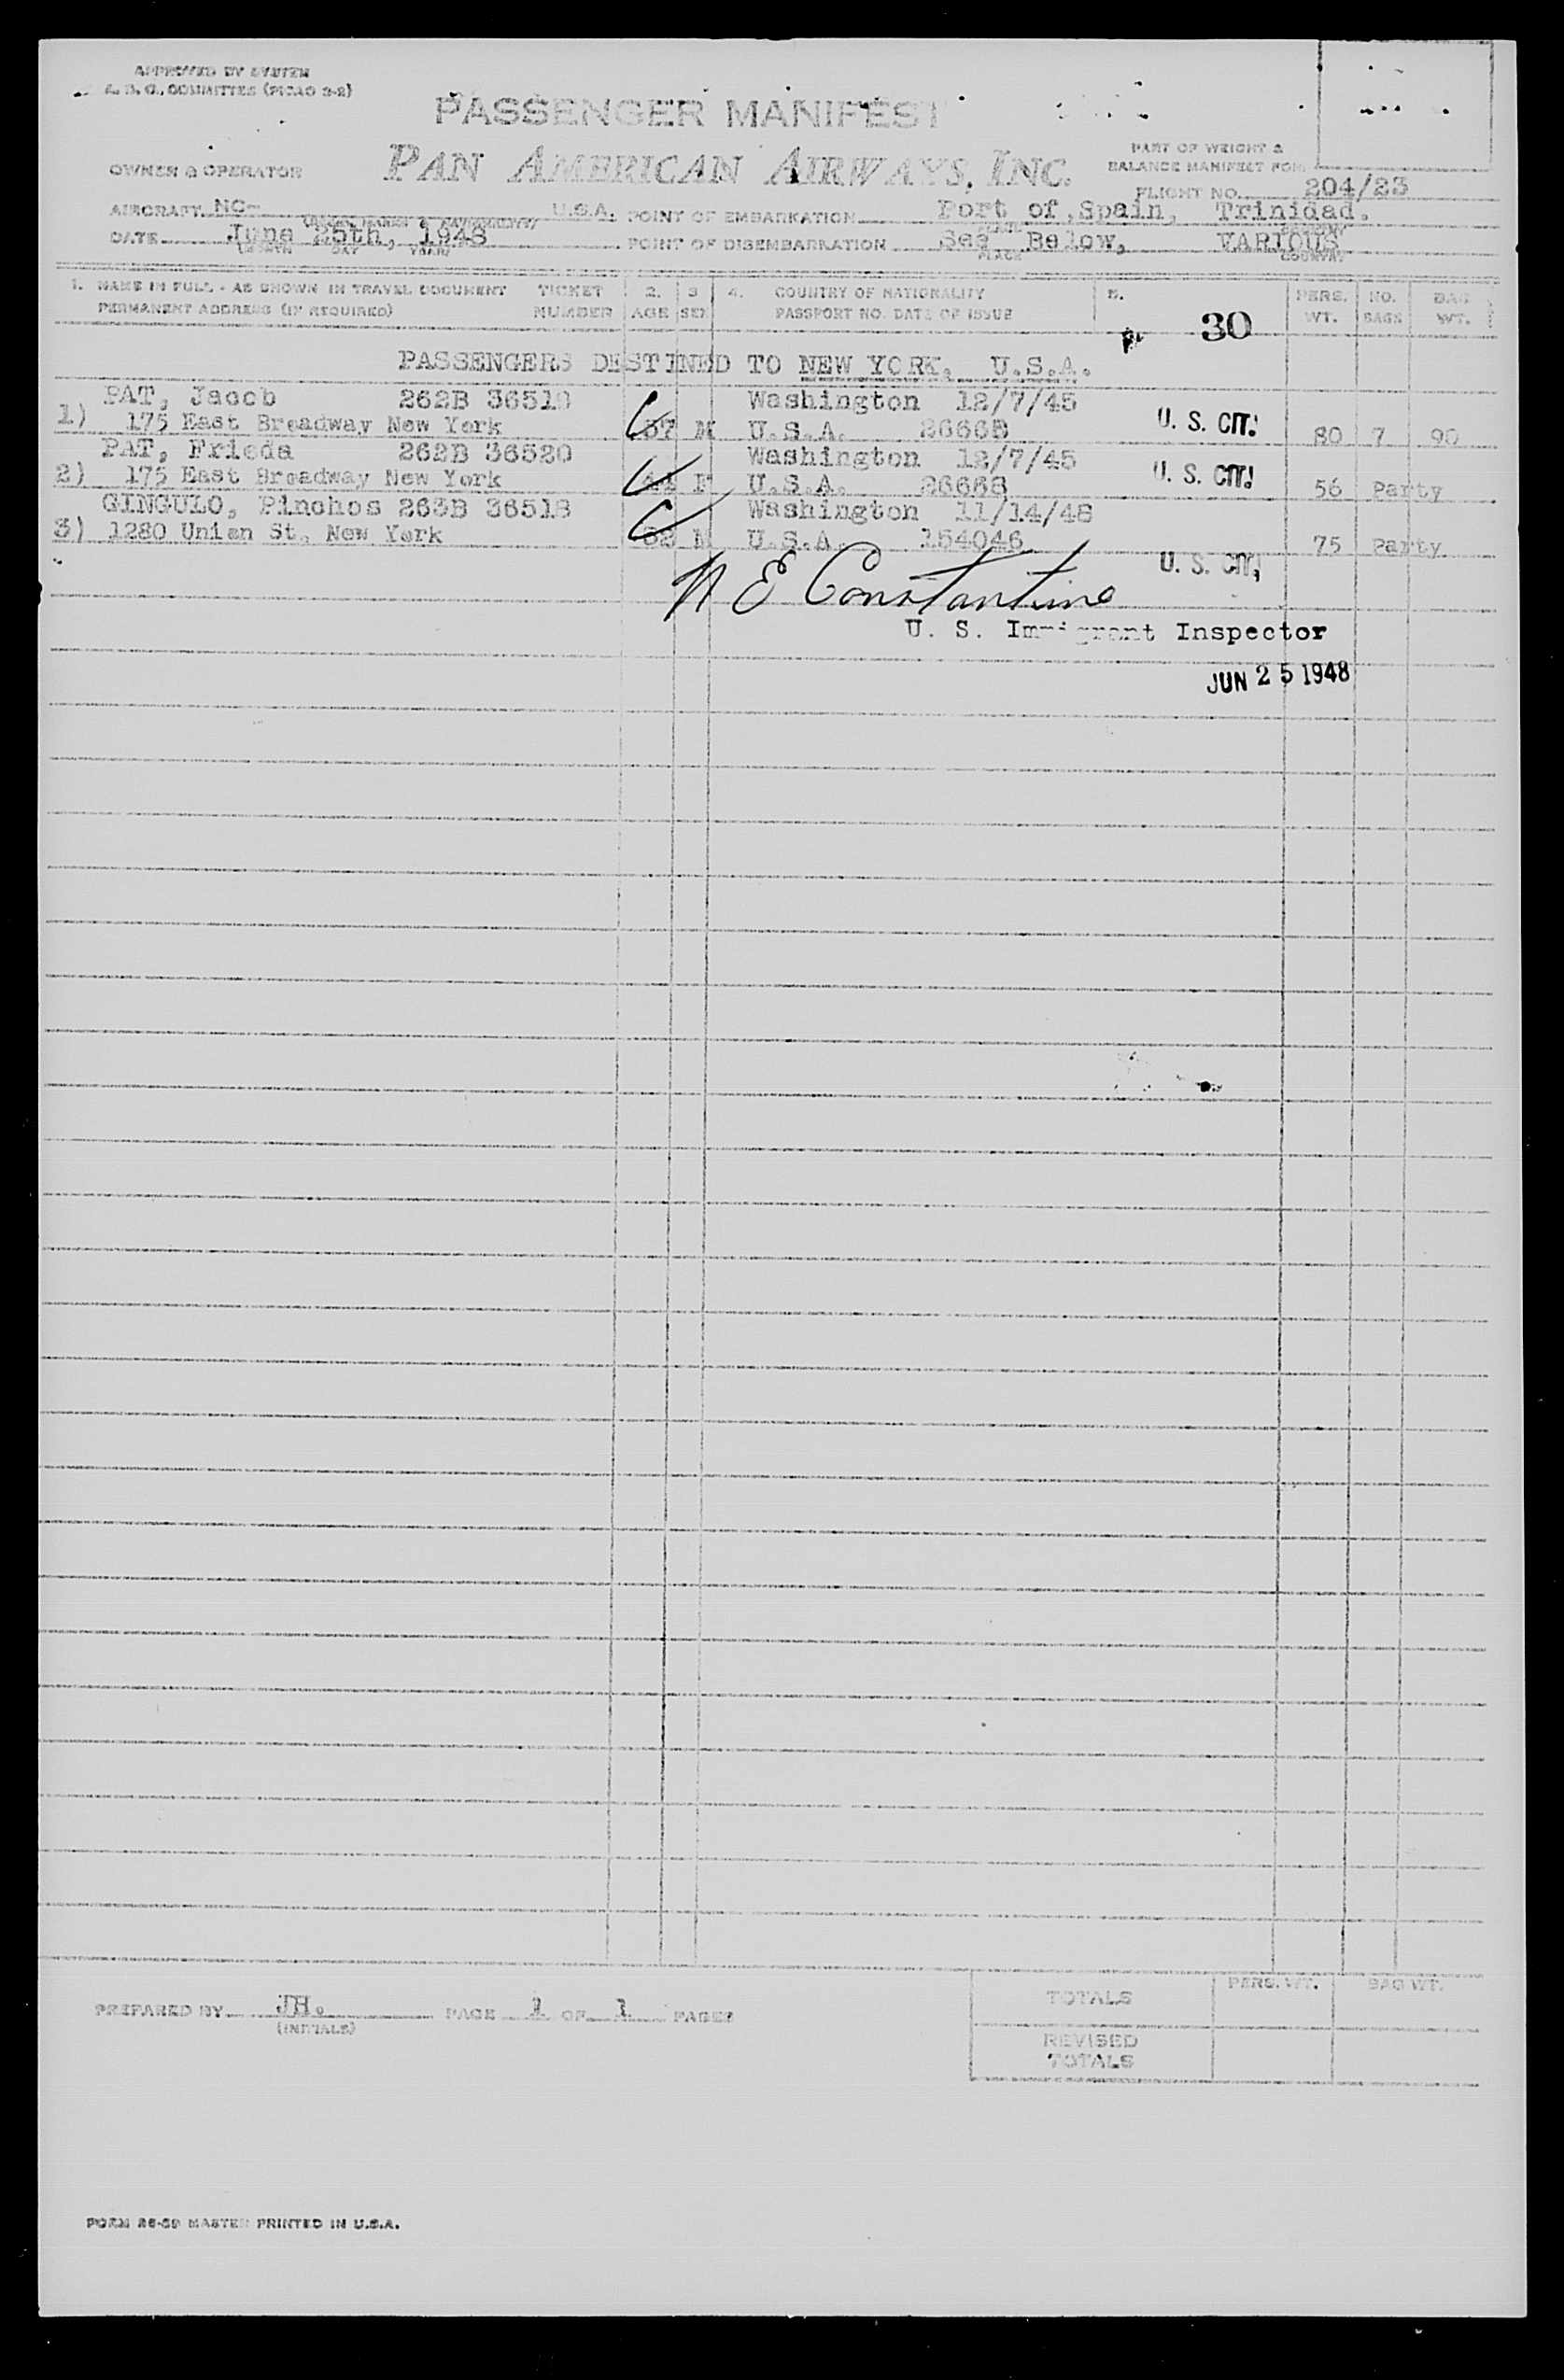 APPROVED BY SYSTEM
COMMITTEE (PICAO 2-2)
PASSENGER MANIFEST
OWNER & OPERATOR PAN AMERICAN AIRWAYS, INC.
PART OF WEIGHT &
BALANCE MANIFEST FOR
FLIGHT NO. 204/23
AIRCRAFT NC- U.S.A. POINT OF EMBARKATION Port of Spain, Trinidad.
DATE June 25th, 1948 POINT OF DISEMBARKATION See Below, VARIOUS
MONTH DAY YEAR PLACE COUNTRY
1. NAME IN FULL - AS SHOWN IN TRAVEL DOCUMENT TICKET 2. 3 4. COUNTRY OF NATIONALITY 5. PERS. NO. BAG
PERMANENT ADDRESS (IF REQUIRED) NUMBER AGE SEX PASSPORT NO. DATE OF ISSUE 30 WT. BAGS WT.
PASSENGERS DESTINED TO NEW YORK, U.S.A.
PAT, Jacob 262B Washington 12/7/45
1) 175 East Broadway New York 57 M U.S.A. U. S. CIT. 80 7 90
PAT, Frieda 262B 36520 Washington 12/7/45
2) 175 East Broadway New York F U.S.A. 26668 U. S. CIT. 56 Party
GINGULO, Pinchos 263B 36518 Washington 11/14/48
3) 1280 Union St. New York M U.S.A. 154046 75 Party
U. S. CIT,
N E Constantine
U. S. Immigrant Inspector
JUN 25 1948
PREPARED BY JH. PAGE 1 OF 1 PAGES
(INITIALS)
PERS. WT. BAG WT.
TOTALS
REVISED
TOTALS
FORM MASTER PRINTED IN U.S.A.